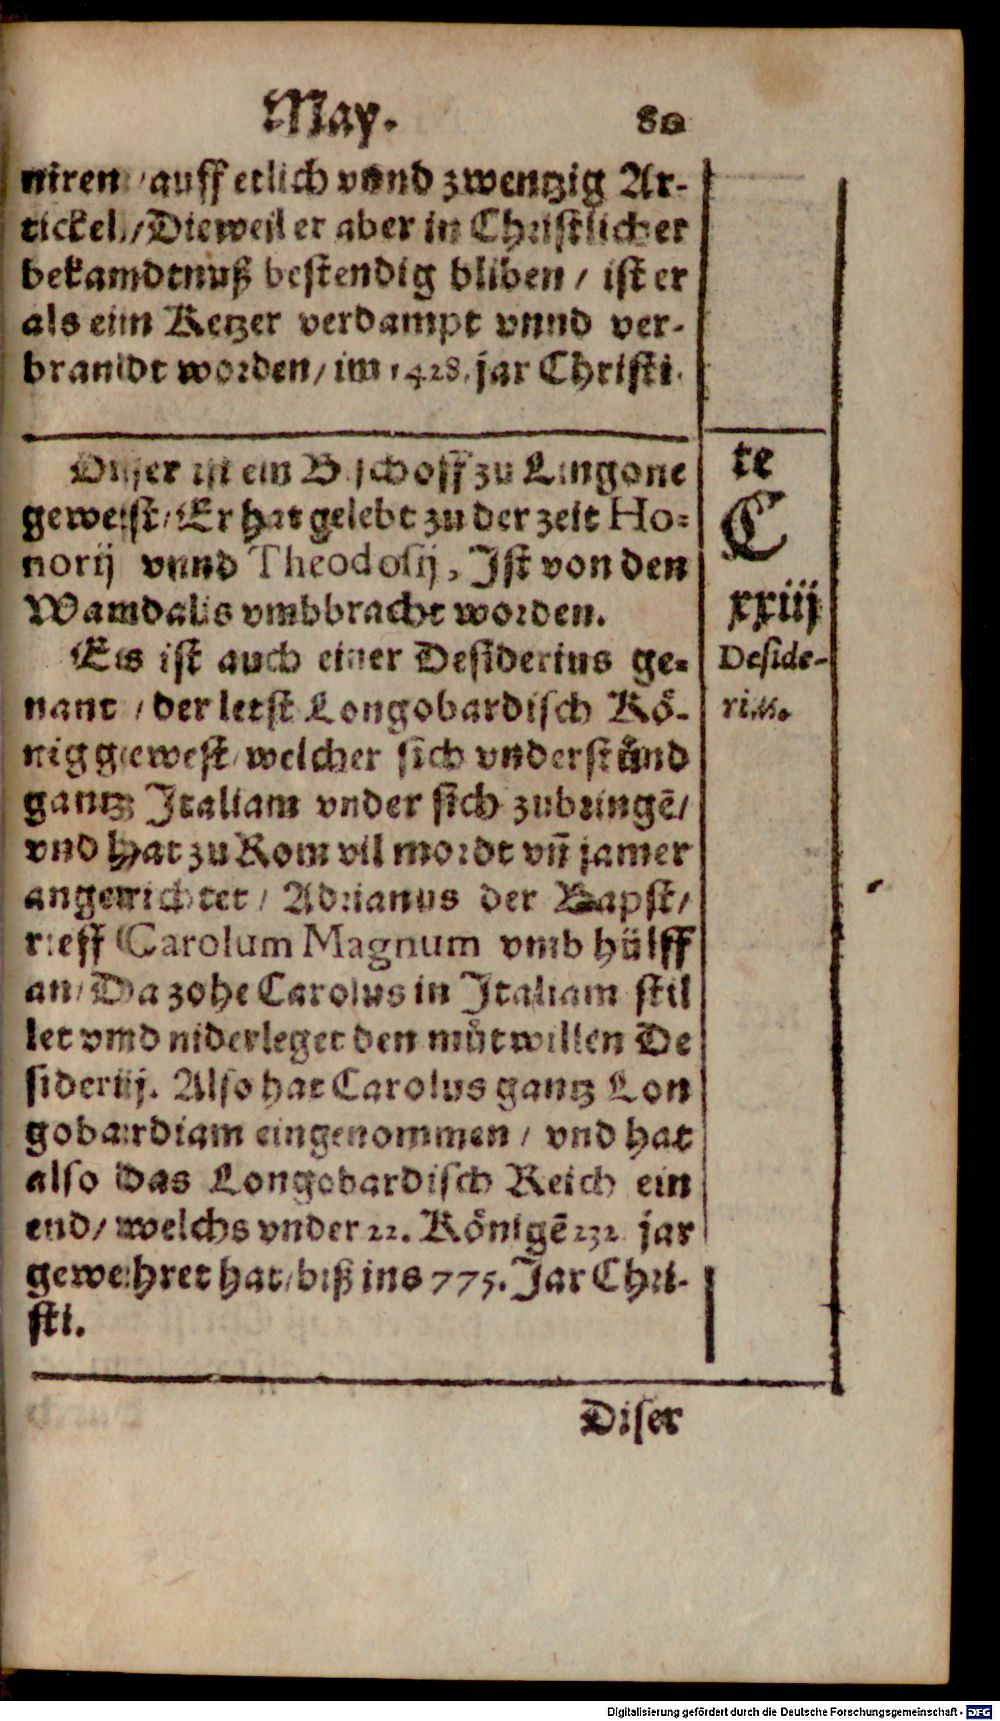 May. 80
niren / auff etlich vnnd zwentzig Ar-
tickel / Dieweil er aber in Christlicher
bekamdtnuß bestendig bliben / ist er
als eim Ketzer verdampt vnnd ver-
brandt worden / im 1428. jar Christi.
Diser ist ein Bischoff zu Lingone
gewest / Er hat gelebt zu der zeit Ho-
norij vnnd Theodosij, Ist von den
Wamdalis vmbbracht worden.
Es ist auch einer Desiderius ge-
nant / der letst Longobardisch Kö-
nig gewest / welcher sich vnderstůnd
gantz Italiam vnder sich zubringē /
vnd hat zu Rom vil mordt vñ jamer
angerichtet / Adrianus der Bapst /
rieff Carolum Magnum vmb hülff
an / Da zohe Carolus in Italiam stil
let vnd niderleget den můtwillen De
siderij. Also hat Carolus gantz Lon
gobardiam eingenommen / vnd hat
also das Longobardisch Reich ein
end / welchs vnder 22. Königē 232 jar
gewehret hat / biß ins 775. Jar Chri-
sti.
te
C
xxiij
Deside-
rius.
Diser
Digitalisierung gefördert durch die Deutsche Forschungsgemeinschaft - DFG